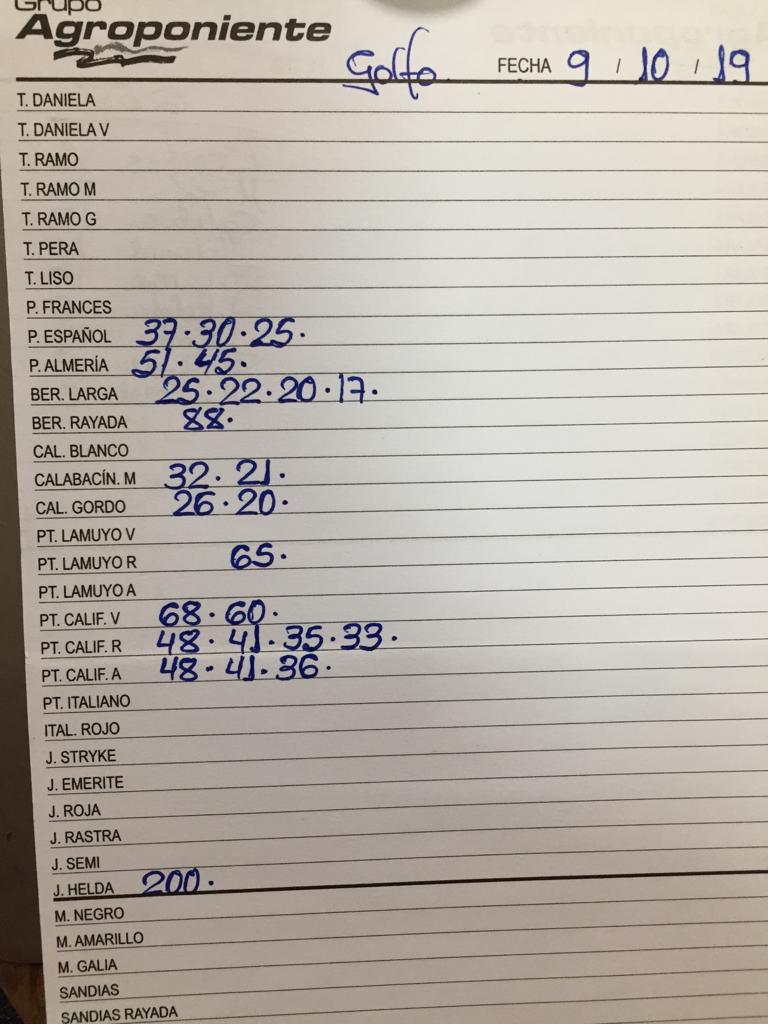 Grupo
Agroponiente
Golfo FECHA 9 / 10 / 19
T. DANIELA
T. DANIELA V
T. RAMO
T. RAMO M
T. RAMO G
T. PERA
T. LISO
P. FRANCES
P. ESPAÑOL 37.30.25.
P. ALMERÍA 51.45.
BER. LARGA 25.22.20.17.
BER. RAYADA 88.
CAL. BLANCO
CALABACÍN. M 32.21.
CAL. GORDO 26.20.
PT. LAMUYO V
PT. LAMUYO R 65.
PT. LAMUYO A
PT. CALIF. V 68.60.
PT. CALIF. R 48.41.35.33.
PT. CALIF. A 48.41.36.
PT. ITALIANO
ITAL. ROJO
J. STRYKE
J. EMERITE
J. ROJA
J. RASTRA
J. SEMI
J. HELDA 200.
M. NEGRO
M. AMARILLO
M. GALIA
SANDIAS
SANDIAS RAYADA